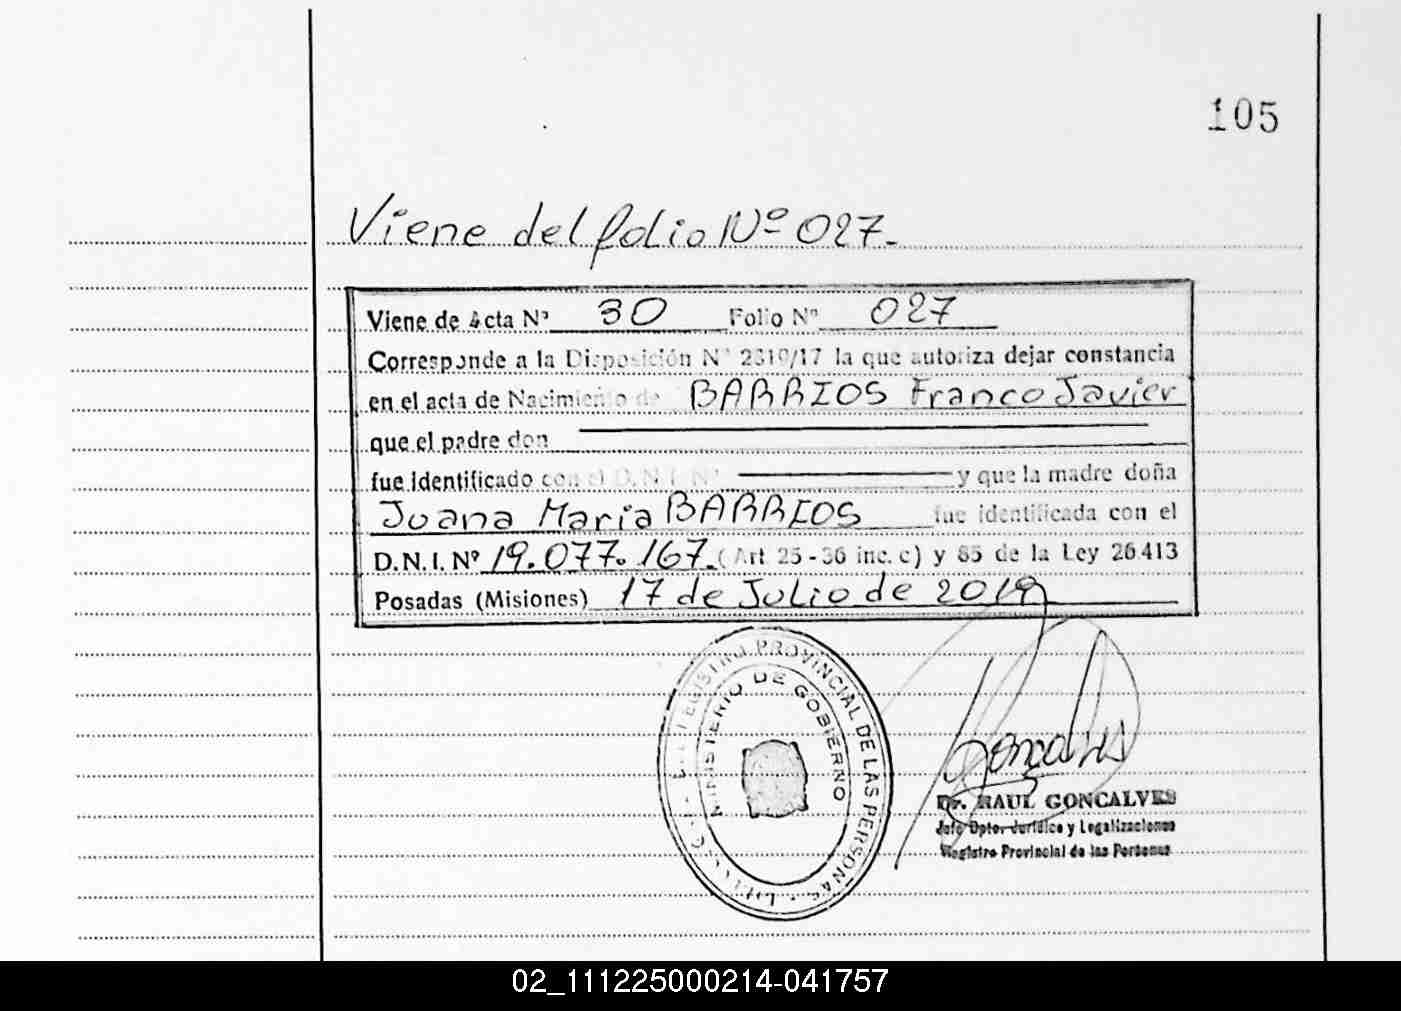 105
Viene del folio Nº 027.
Viene de Acta Nº 30 Folio Nº 027
Corresponde a la Disposición Nº 2310/17 la que autoriza dejar constancia
en el acta de Nacimiento de BARRIOS Franco Javier
que el padre don
fue identificado con el D.N.I. Nº y que la madre doña
Juana Maria BARRIOS fue identificada con el
D.N.I. Nº 19.077.167. (Art 25-36 inc. c) y 85 de la Ley 26413
Posadas (Misiones) 17 de Julio de 2019
REGISTRO PROVINCIAL DE LAS PERSONAS
MINISTERIO DE GOBIERNO
Gonçalves
Dr. RAUL GONCALVES
Jefe Dpto. Jurídico y Legalizaciones
Registro Provincial de las Personas
02_111225000214-041757